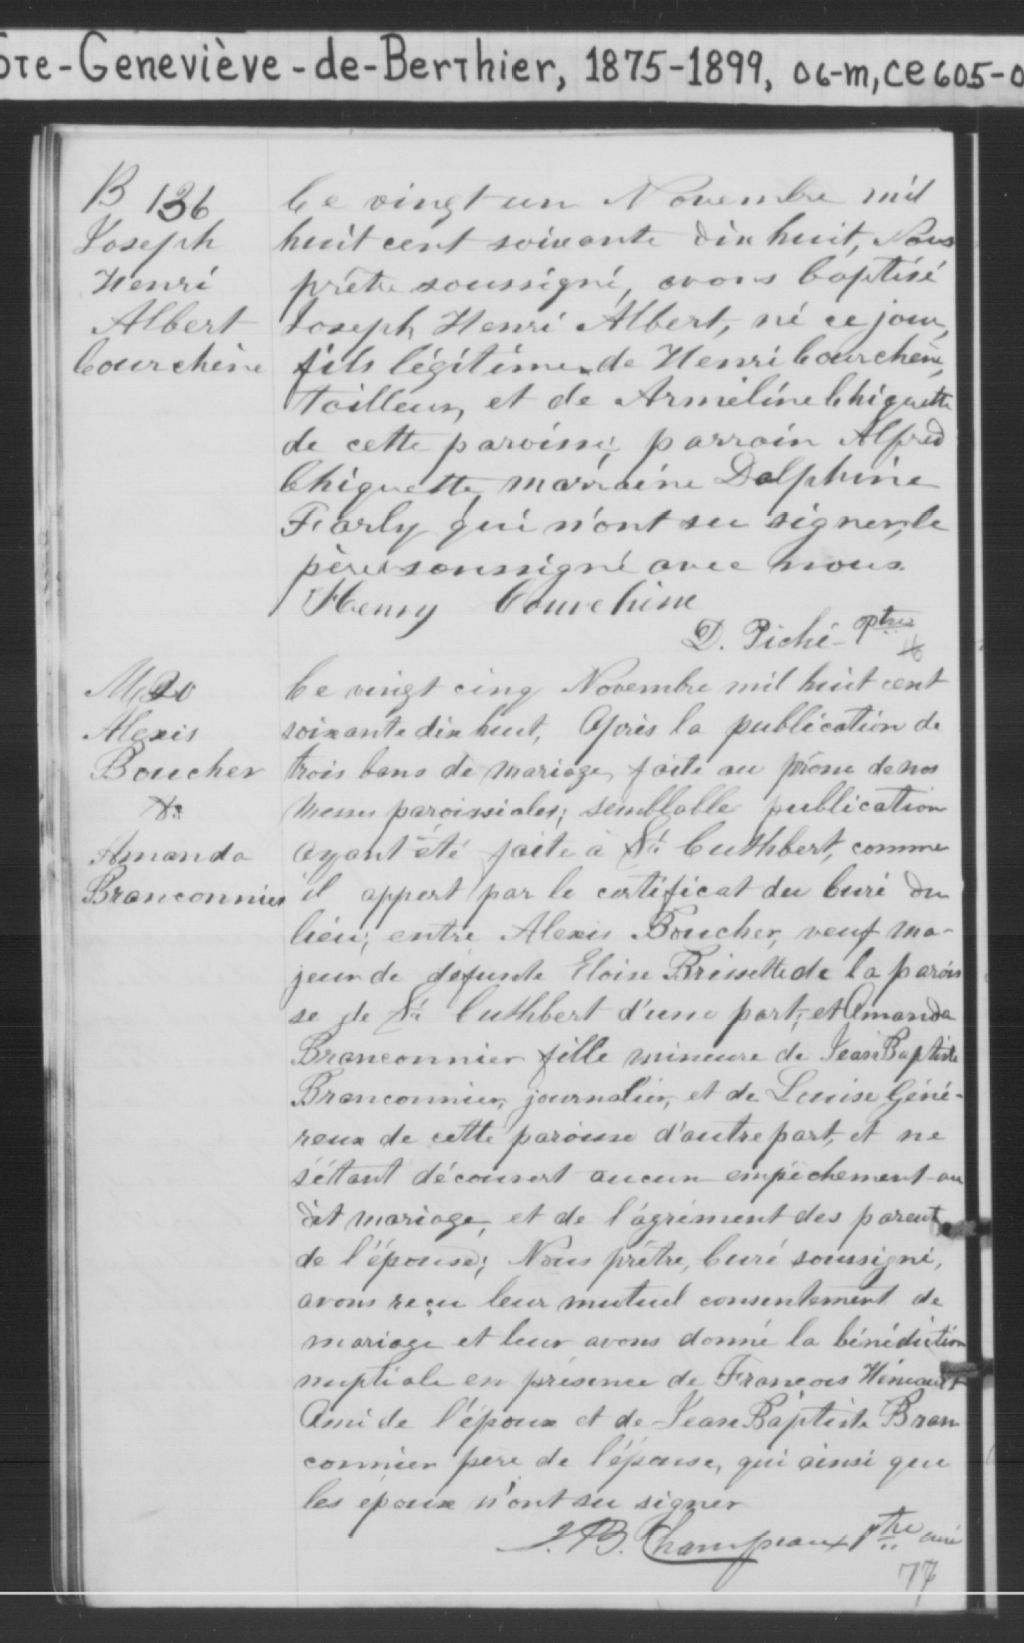 Ste-Geneviève-de-Berthier, 1875-1899, 06-m, ce605-0
B 136
Joseph
Henri
Albert
Courchène
Ce vingt un Novembre mil
huit cent soixante dix huit, Nous
prêtre soussigné, avons baptisé
Joseph Henri Albert, né ce jour,
fils légitime de Henri Courchène,
tailleur, et de Arméline Chiquette
de cette paroisse; parrain Alfred
Chiquette, marraine Dolphine
Farly qui n'ont su signer, le
père soussigné avec nous.
Henry Courchine
D. Piché ptre
M 20
Alexis
Boucher
&
Amanda
Branconnier
Ce vingt cinq Novembre mil huit cent
soixante dix huit, après la publication de
trois bans de mariage, faite au prône de nos
messes paroissiales; semblable publication
ayant été faite à St Cuthbert, comme
il appert par le certificat du Curé du
lieu; entre Alexis Boucher, veuf ma-
jeur de défunte Eloise Brissette de la parois
se de St Cuthbert d'une part; et Amanda
Branconnier fille mineure de Jean Baptiste
Branconnier, journalier, et de Louise Géné-
reux de cette paroisse d'autre part, et ne
s'étant découvert aucun empêchement au
dit mariage, et de l'agrément des parents
de l'épouse; Nous prêtre, Curé soussigné,
avons reçu leur mutuel consentement de
mariage et leur avons donné la bénédiction
nuptiale en présence de François Hénault
Ami de l'époux et de Jean Baptiste Bran
connier père de l'épouse, qui ainsi que
les époux n'ont su signer
J. B. Champeaux ptre curé
77